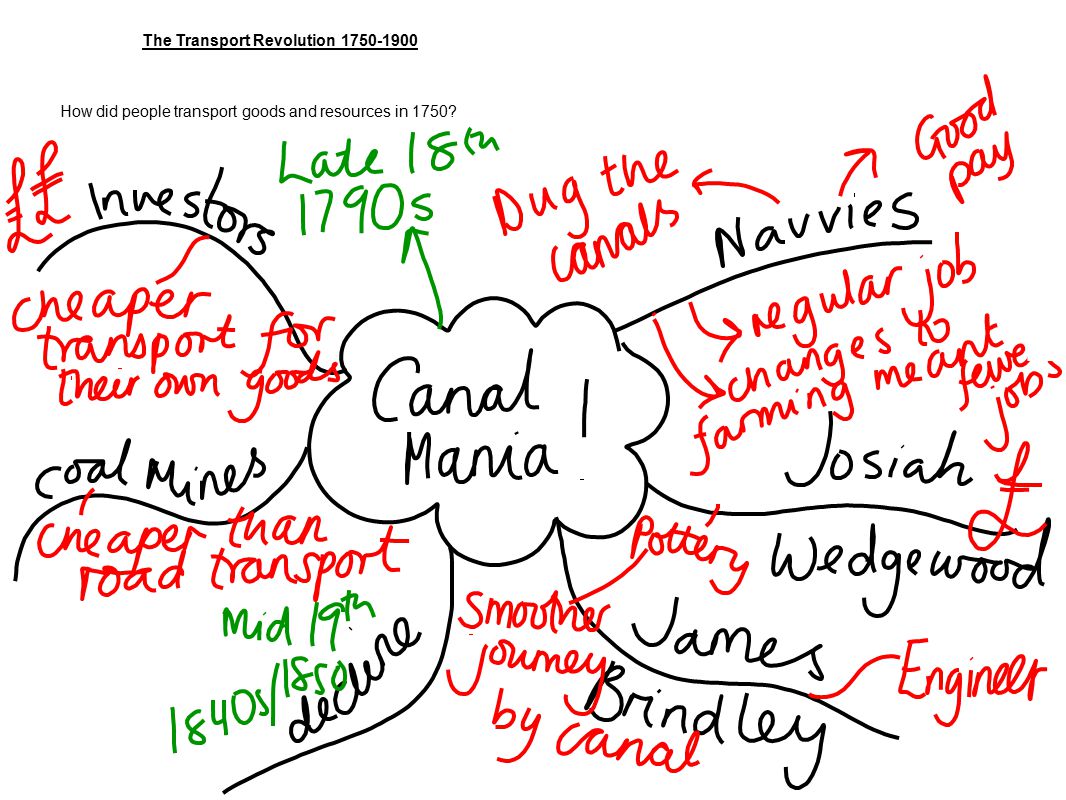 The Transport Revolution 1750-1900
How did people transport goods and resources in 1750?
££
Investors
Cheaper
transport for
their own goods
Late 18th
1790s
Dug the
canals
Navvies
Good
pay
regular job
changes to
farming meant
fewe
jobs
Canal
Mania!
Coal Mines
cheaper than
road transport
Josiah
Wedgewood
£
Pottery
Smoother
journey
by canal
James
Brindley
Engineer
Mid 19th
1840s/1850
decline